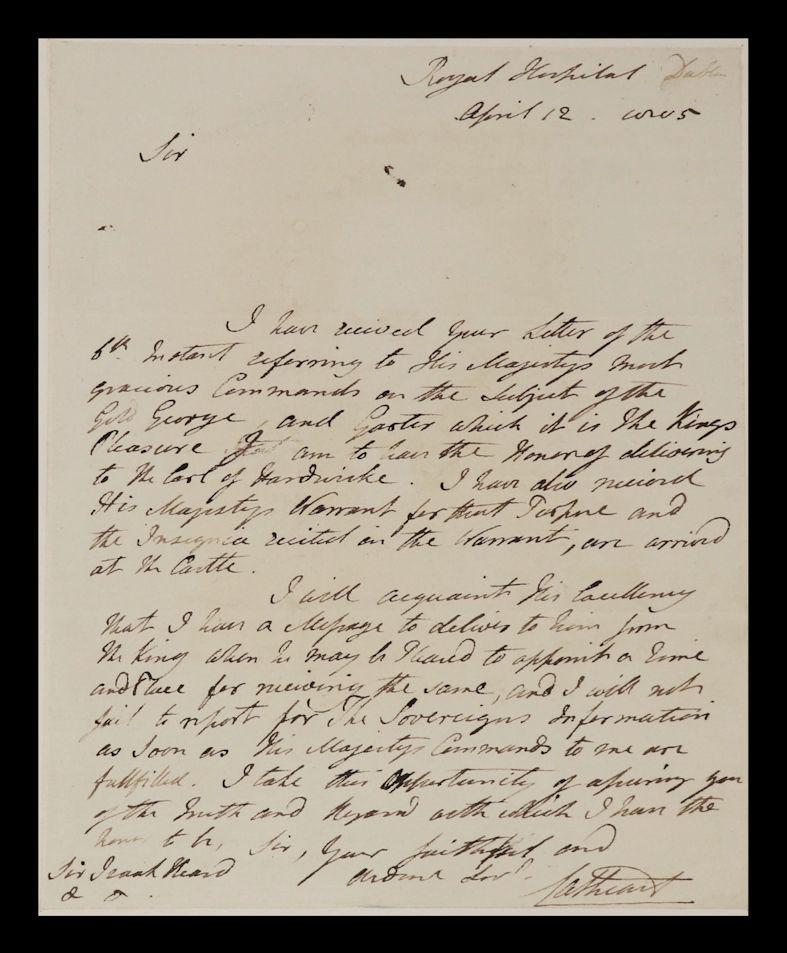 Royal Hospital Dublin
April 12. 1805
Sir
I have received your Letter of the
6th Instant referring to His Majestys most
gracious Commands on the Subject of the
Gold George, and Garter which it is the Kings
Pleasure I am to have the Honor of delivering
to the Earl of Hardwicke. I have also received
His Majestys Warrant for that Purpose and
the Insignia recited in the Warrant, are arrived
at the Castle.
I will acquaint His Excellency
that I have a Message to deliver to him from
the King when he may be Pleased to appoint a time
and Place for receiving the same, and I will not
fail to report for The Sovereigns Information
as soon as His Majestys Commands to me are
fullfilled. I take this Opportunity of assuring you
of the Truth and Regard with which I have the
honor to be, Sir, your faithful and
Sir Isaak Heard obedient Servt.
& &.
Cathcart